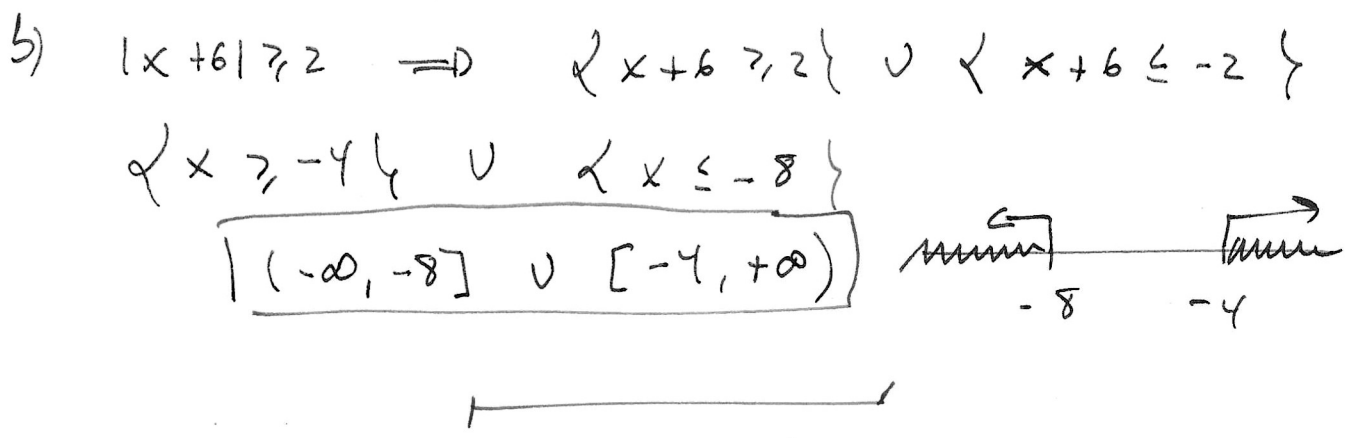 b) |x+6| ≥ 2 ⇒ {x+6 ≥ 2} ∪ {x+6 ≤ -2}
{x ≥ -4} ∪ {x ≤ -8}
(-∞, -8] ∪ [-4, +∞)
-8 -4